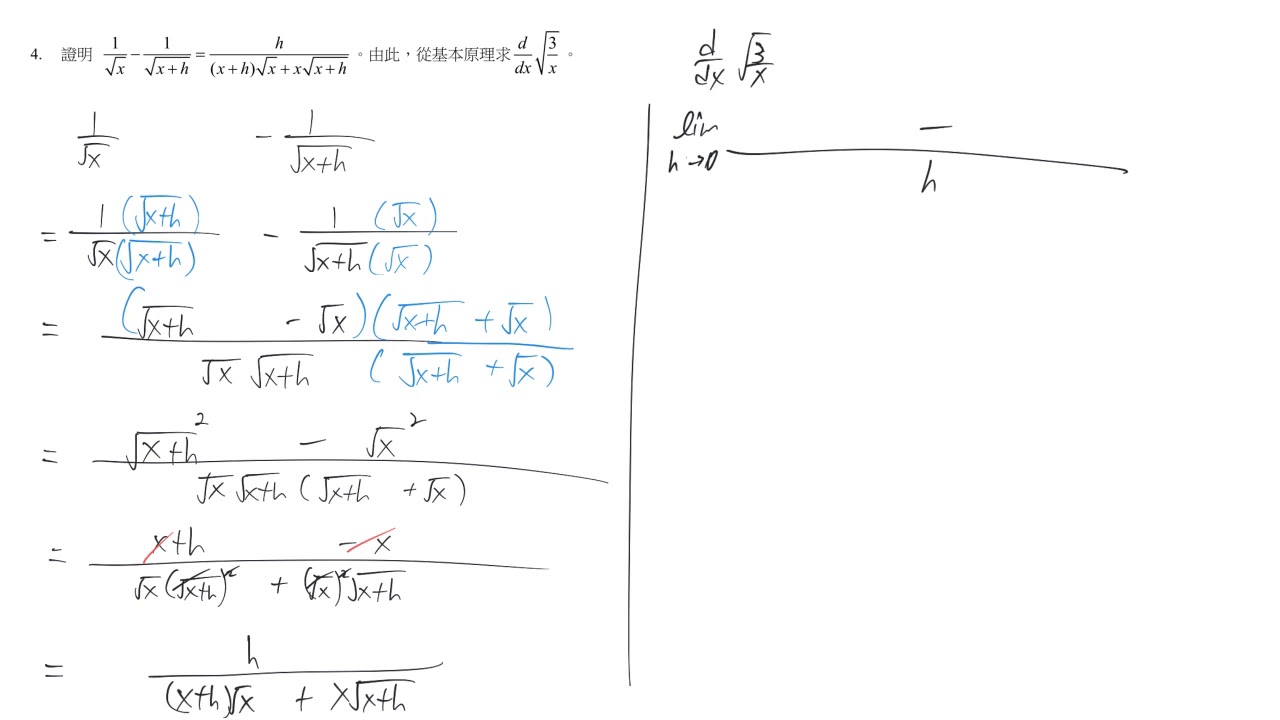 4. 證明 1/√x − 1/√(x+h) = h/((x+h)√x + x√(x+h)) 。由此，從基本原理求 d/dx √(3/x) 。
1/√x − 1/√(x+h)
= 1(√(x+h))/(√x(√(x+h))) − 1(√x)/(√(x+h)(√x))
= (√(x+h) − √x)(√(x+h) + √x)/(√x √(x+h) (√(x+h) + √x))
= (√(x+h)² − √x²)/(√x √(x+h) (√(x+h) + √x))
= (x+h − x)/(√x(√(x+h))² + (√x)²√(x+h))
= h/((x+h)√x + x√(x+h))
d/dx √(3/x)
lim h→0 (−)/h